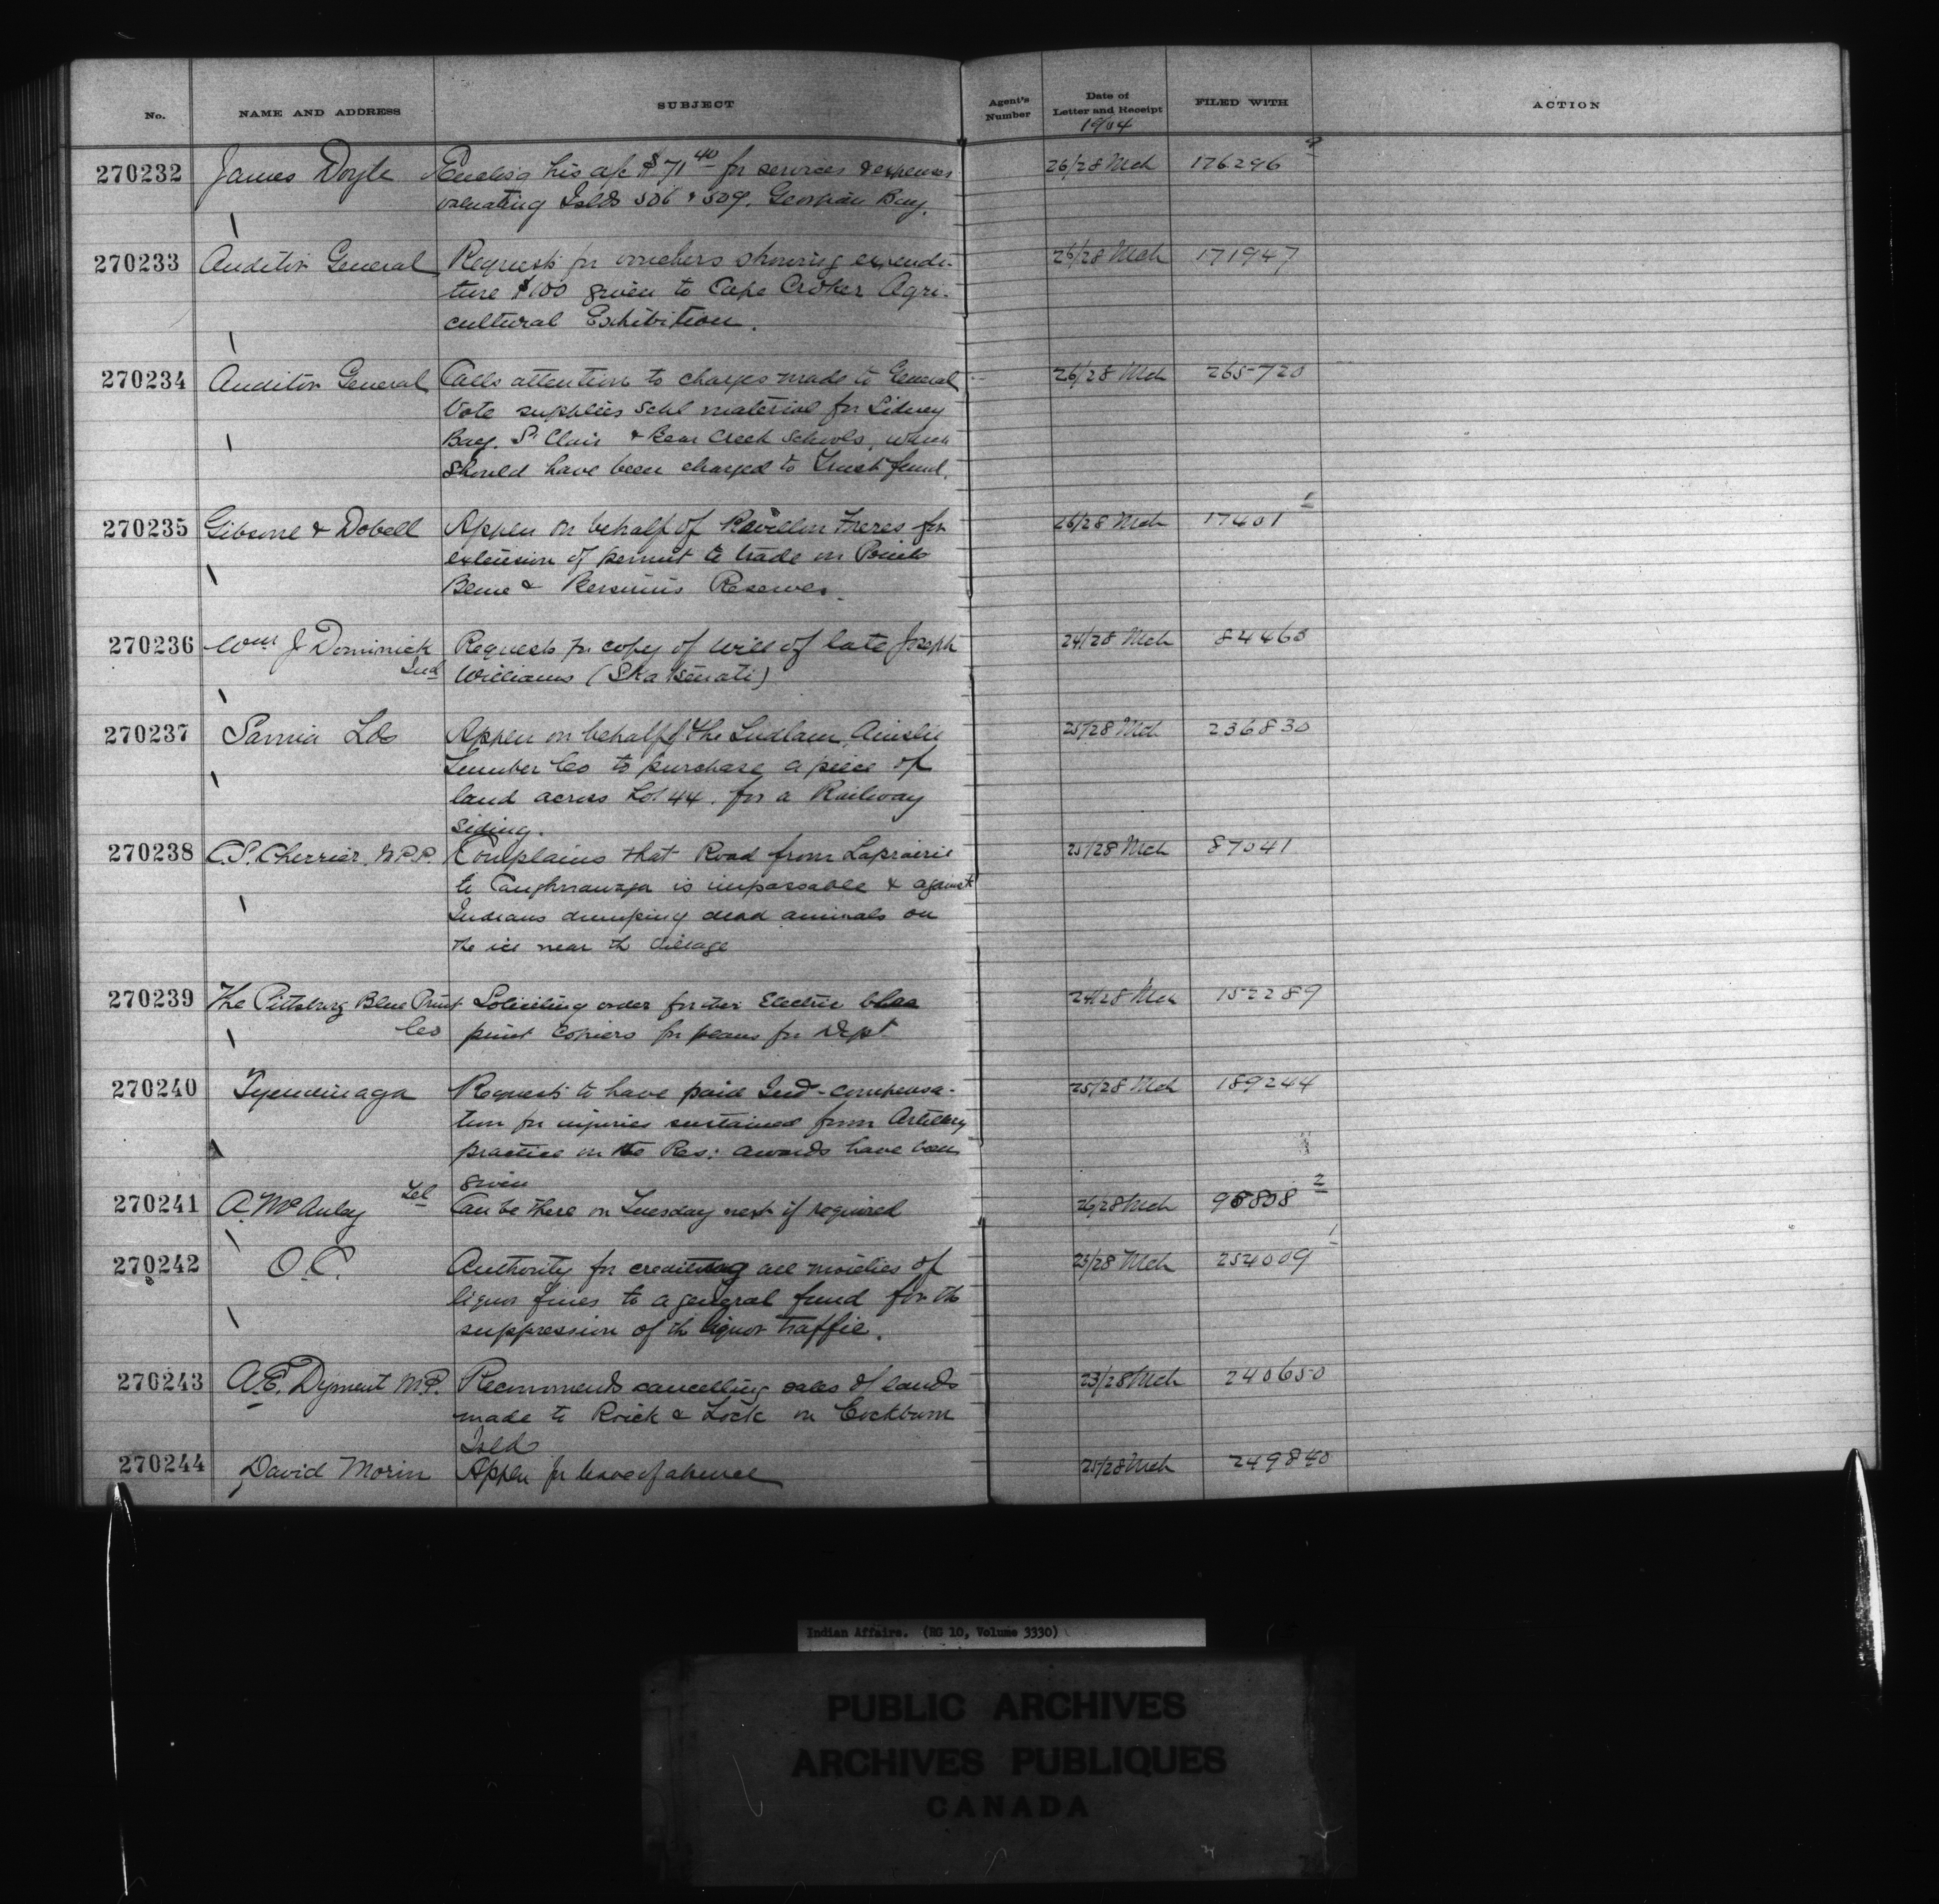 No. NAME AND ADDRESS SUBJECT Agent's Number Date of Letter and Receipt FILED WITH ACTION
1904
270232 James Doyle Enclosg his a/c $71 40 for services & expenses 26/28 Mch 176296
valuating Islds 506 & 509. Georgian Bay.
270233 Auditor General Requests for vouchers showing expendi- 26/28 Mch 171947
ture $100 given to Cape Croker Agri-
cultural Exhibition.
270234 Auditor General Calls attention to charges made to General 26/28 Mch 265720
Vote supplies Schl material for Sidney
Bay. St Clair & Bear Creek Schools, which
should have been charged to Trust fund.
270235 Gibsone & Dobell Applen on behalf of Revillon Freres for 26/28 Mch 17401 1
extension of permit to trade on Pointe
Bleue & Bersimis Reserves.
270236 Wm J Dominick Requests for copy of will of late Joseph 24/28 Mch 84460
Ind Williams
270237 Sarnia Lds Applen on behalf of The Ludlam, Ainslie 25/28 Mch 236830
Lumber Co to purchase a piece of
land across Lot 44. for a Railway
siding.
270238 C.S. Cherrier, M.P.P. Complains that Road from Laprairie 25/28 Mch 87041
to Caughnawaga is impassable & against
Indians dumping dead animals on
the ice near th village
270239 The Pittsburg Blue Print Soliciting order for their Electric blue 24/28 Mch 152289
Co print copiers for plans for Dept
270240 Tyendinaga Requests to have paid Ind- compensa- 25/28 Mch 189244
tion for injuries sustained from Artillery
practice on the Res: awards have been
given
270241 A. McAulay Tel Can be there on Tuesday next if required 26/28 Mch 98808 2
270242 O.C. Authority for crediting all moieties of 23/28 Mch 254009 1
liquor fines to a general fund for th
suppression of th liquor traffic.
270243 A.E. Dyment M.P. Recommends cancelling sales of lands 23/28 Mch 240650
made to & Lock on Cockburn
Isld
270244 David Morin Applen for leave of absence 25/28 Mch 249840
Indian Affairs. (RG 10, Volume 3330)
PUBLIC ARCHIVES
ARCHIVES PUBLIQUES
CANADA